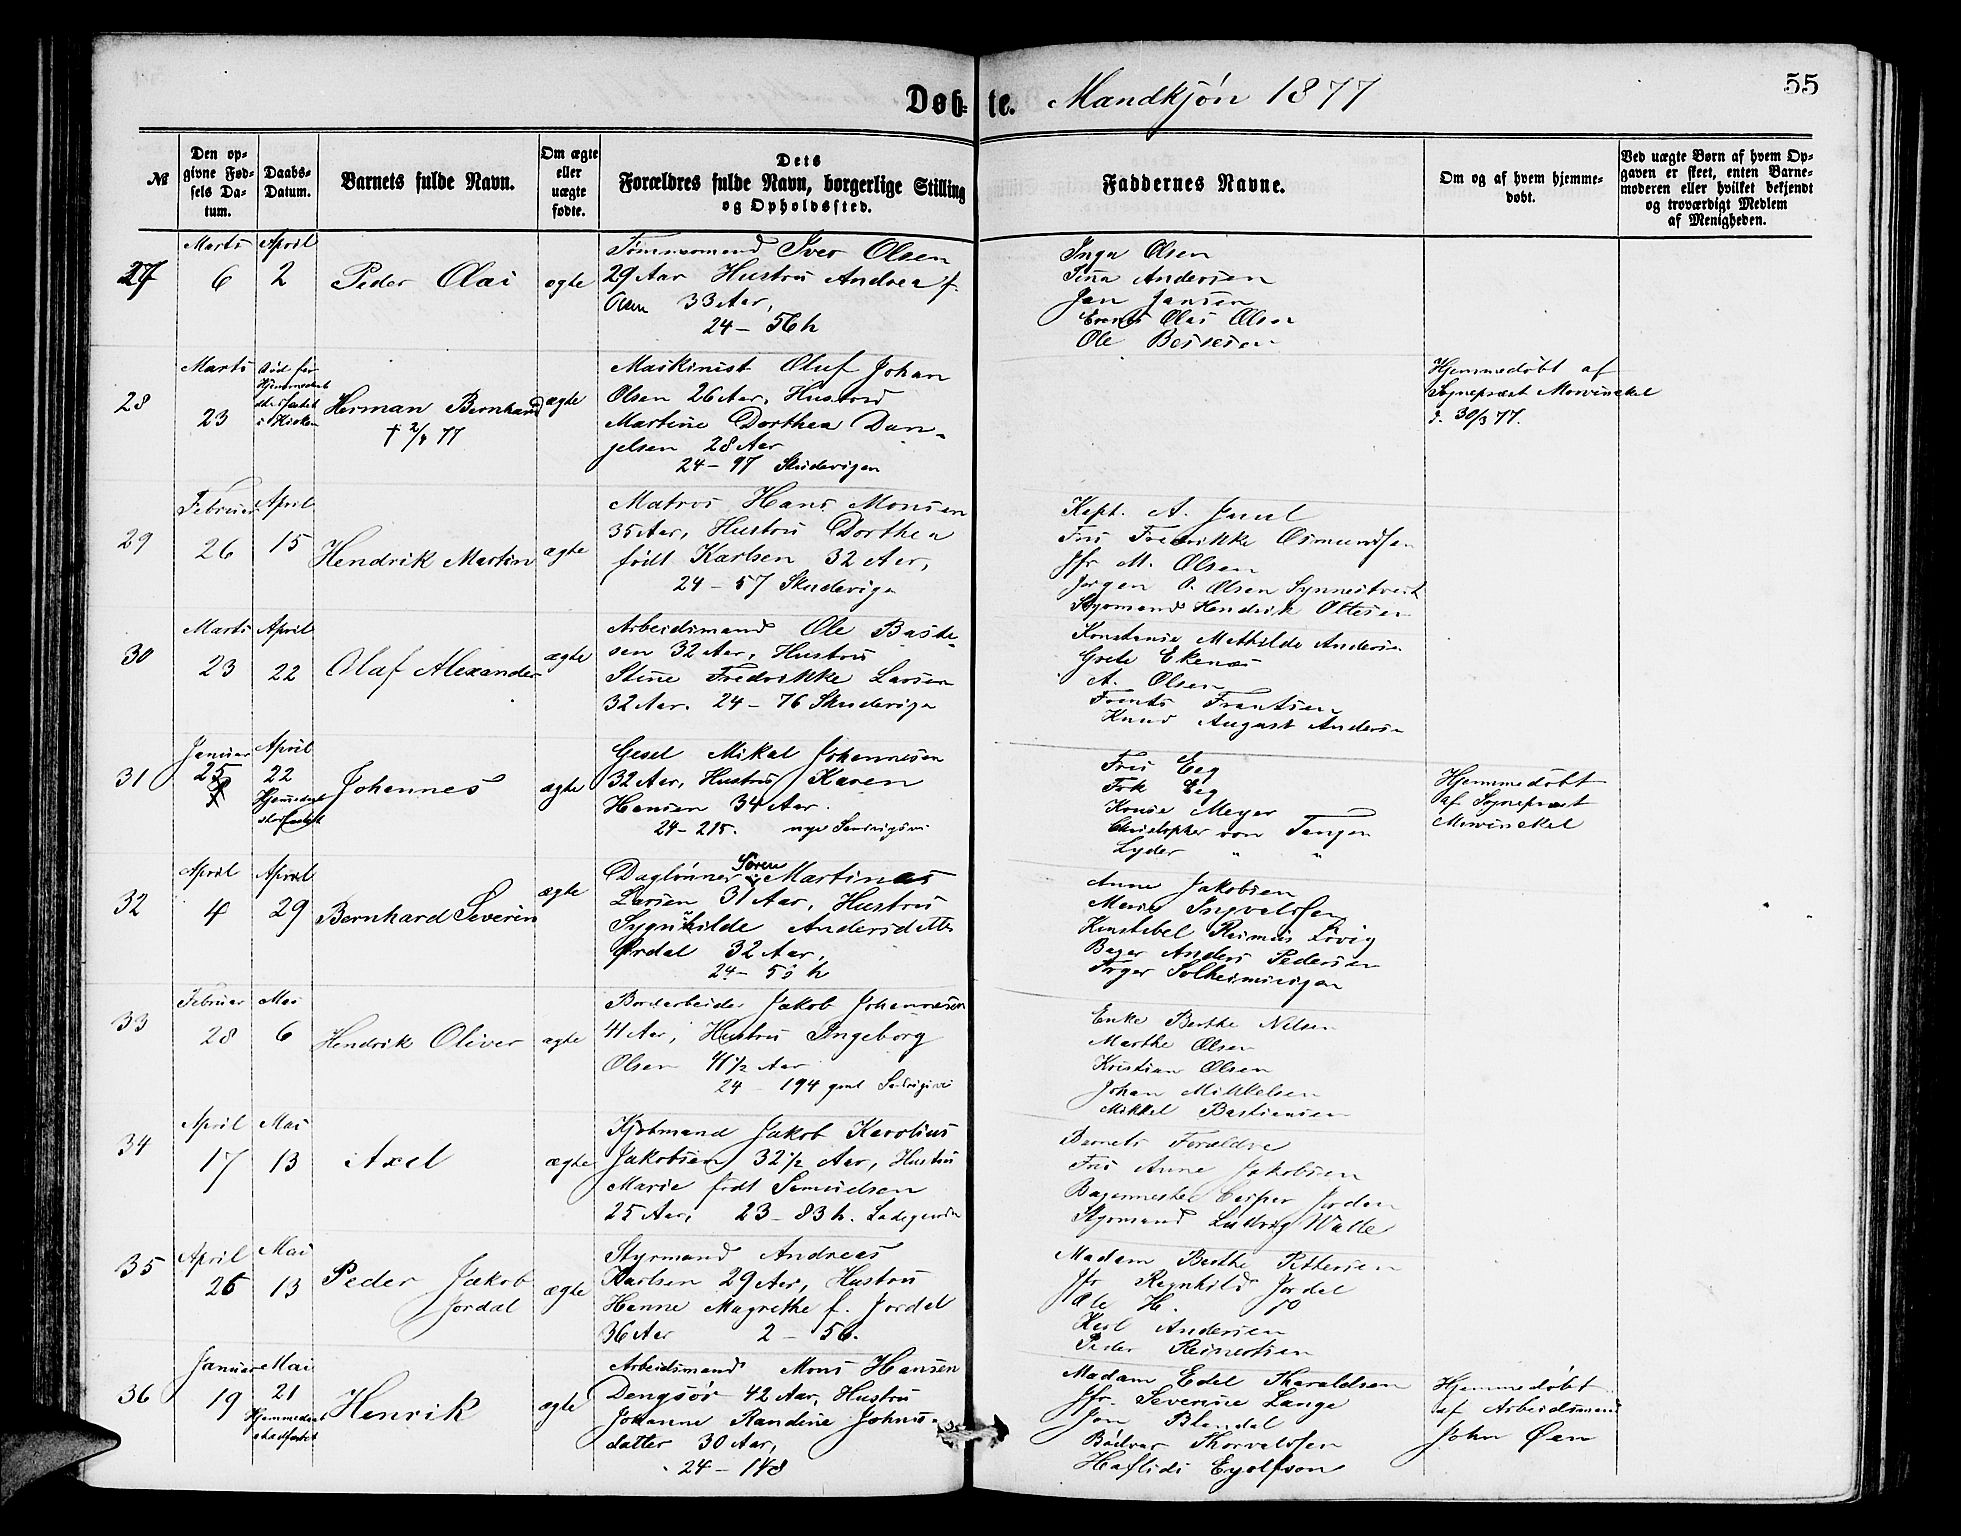 Døb- te. Mandkjøn 1877
55
№
Den opgivne Fødsels Datum.
Daabs-Datum.
Barnets fulde Navn.
Om ægte eller uægte fødte.
Dets Forældres fulde Navn, borgerlige Stilling og Opholdssted.
Faddernes Navne.
Om og af hvem hjemmedøbt.
Ved uægte Børn af hvem Opgaven er skeet, enten Barnemoderen eller hvilket bekjendt og troværdigt Medlem af Menigheden.
27
Marts 6
April 2
Peder Olai
ægte
Tømmermand Iver Olsen
29 Aar Hustru Andrea f.
Olsen 33 Aar,
24 – 56 h
Inga Olsen
Sina Andersen
Jan Jansen
Olai Olsen
Ole Bessesen
28
Marts 23
død før
Hjemmedaab
i Kirken
Herman Bernhard
† 2/4 77
ægte
Maskinist Oluf Johan
Olsen 26 Aar, Hustru
Martine Dorthea Dan-
jelsen 28 Aar
24 – 97 Skudevigen
Hjemmedøbt af
Sognepræst Morvinckel
d. 30/3 77.
29
Februar 26
April 15
Hendrik Martin
ægte
Matros Hans Monsen
35 Aar, Hustru Dorthea
født Karlsen 32 Aar,
24 – 57 Skudevigen
Kapt. A. Juul
Fru Fredrikke Osmundsen
Jfr M. Olsen
Jørgen O. Olsen Synnestvedt
Styrmand Hendrik Ottesen
30
Marts 23
April 22
Olaf Alexander
ægte
Arbeidsmand Ole Baste-
sen 32 Aar, Hustru
Stine Fredrikke Larsen
32 Aar. 24 – 76 Skudevigen
Konstanse Mathilde Andersen
Grete Ekenæs
A. Olsen
Frants Frantsen
Knud August Andersen
31
Januar 25
April 22
Hjemmedaab
stadfæstet
Johannes
ægte
Gesel Mikal Johannesen
32 Aar, Hustru Karen
Hansen 34 Aar.
24 – 215. nye Sandvigsvei
Fru Eeg
Frk Eeg
Konse Meyer
Christopher von Tangen
Lyder " "
Hjemmedøbt
af Sognepræst
Morvinckel
32
April 4
April 29
Bernhard Severin
ægte
Daglønner Søren Martinus
Larsen 31 Aar, Hustru
Sygnhilde Andersdatter
Ørdal 32 Aar,
24 – 55 h
Anne Jakobsen
Marie Ingvaldsen
Konstabel Rasmus Løvig
Bager Anders Pedersen
Solheimsvigen
33
Februar 28
Mai 6
Hendrik Oliver
ægte
Bordarbeider Jakob Johannesen
41 Aar, Hustru Ingeborg
Olsen 41 1/2 Aar
24 – 194 gml Sandvigsvei
Enke Berthe Nelsen
Marthe Olsen
Kristian Olsen
Johan Mikkelsen
Mikkel Bastiansen
34
April 17
Mai 13
Axel
ægte
Kjøbmand Jakob Karolius
Jakobsen 32 1/2 Aar, Hustru
Marie født Samuelsen
25 Aar, 23 – 83 h. Ladegaarden
Barnets Forældre
Fru Anne Jakobsen
Bagermester Casper Jordan
Styrmand Ludvig Walle
35
April 26
Mai 13
Peder Jakob
Jordal
ægte
Styrmand Andreas
Karlsen 29 Aar, Hustru
Hanne Magrethe f. Jordal
36 Aar 2 – 56.
Madam Berthe Pettersen
Jfr Ragnhild Jordal
Ole H. do
Karl Andersen
Peder Reinertsen
36
Januar 19
Mai 21
Hjemmedaab
stadfæstet
Henrik
ægte
Arbeidsmand Mons Hansen
Dengsør 42 Aar, Hustru
Johanne Randine Johns-
datter 30 Aar,
24 – 148
Madam Edel Haraldsen
Jfr. Severine Lange
Jon Blandal
Bødvar Thorvaldsen
Haflidi Eyolfson
Hjemmedøbt
af Arbeidsmand
John Øen